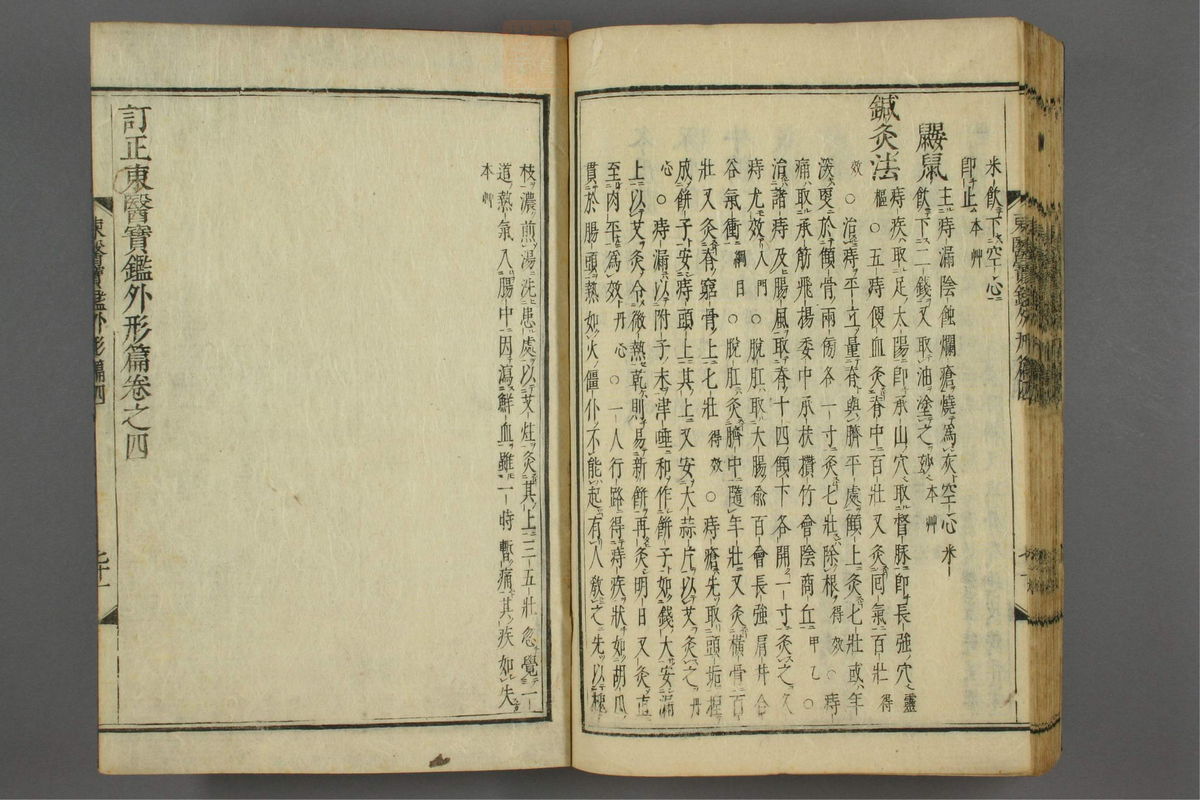 米飲下空心
即止 本艸
鼹鼠 主痔漏陰蝕爛瘡燒爲灰空心米
飲下二錢又取油塗之妙 本艸
鍼灸法 痔疾取足太陽即承山穴取督脉即長強穴 靈
樞○五痔便血灸脊中百壯又灸囘氣百壯 得
效○治痔平立量脊與臍平處顀上灸七壯或年
深更於顀骨兩傍各一寸灸七壯除根 得效○痔
痛取承筋飛揚委中承扶攢竹會陰商丘 甲乙○
治諸痔及腸風取脊十四顀下各開一寸灸之久
痔尤效 入門○脫肛取大腸俞百會長強肩井合
谷氣衝 綱目○脫肛灸臍中隨年壯又灸橫骨百
壯又灸脊窮骨上七壯 得效○痔瘡先取頭垢捏
成餅子安痔頭上其上又安大蒜片以艾灸之 丹
心○痔漏以附子末津唾和作餅子如錢大安漏
上以艾灸令微熱乾則易新餅再灸明日又灸直
至肉平爲效 丹心○一人行路得痔疾狀如胡瓜
貫於腸頭熱如火僵仆不能起有人敎之先以槐
枝濃煎湯洗患處以艾炷灸其上三五壯忽覺一
道熱氣入腸中因瀉鮮血雖一時暫痛其疾如失
本艸
訂正東醫寶鑑外形篇卷之四
東醫寶鑑外形篇四
七十一
東醫寶鑑外形篇四